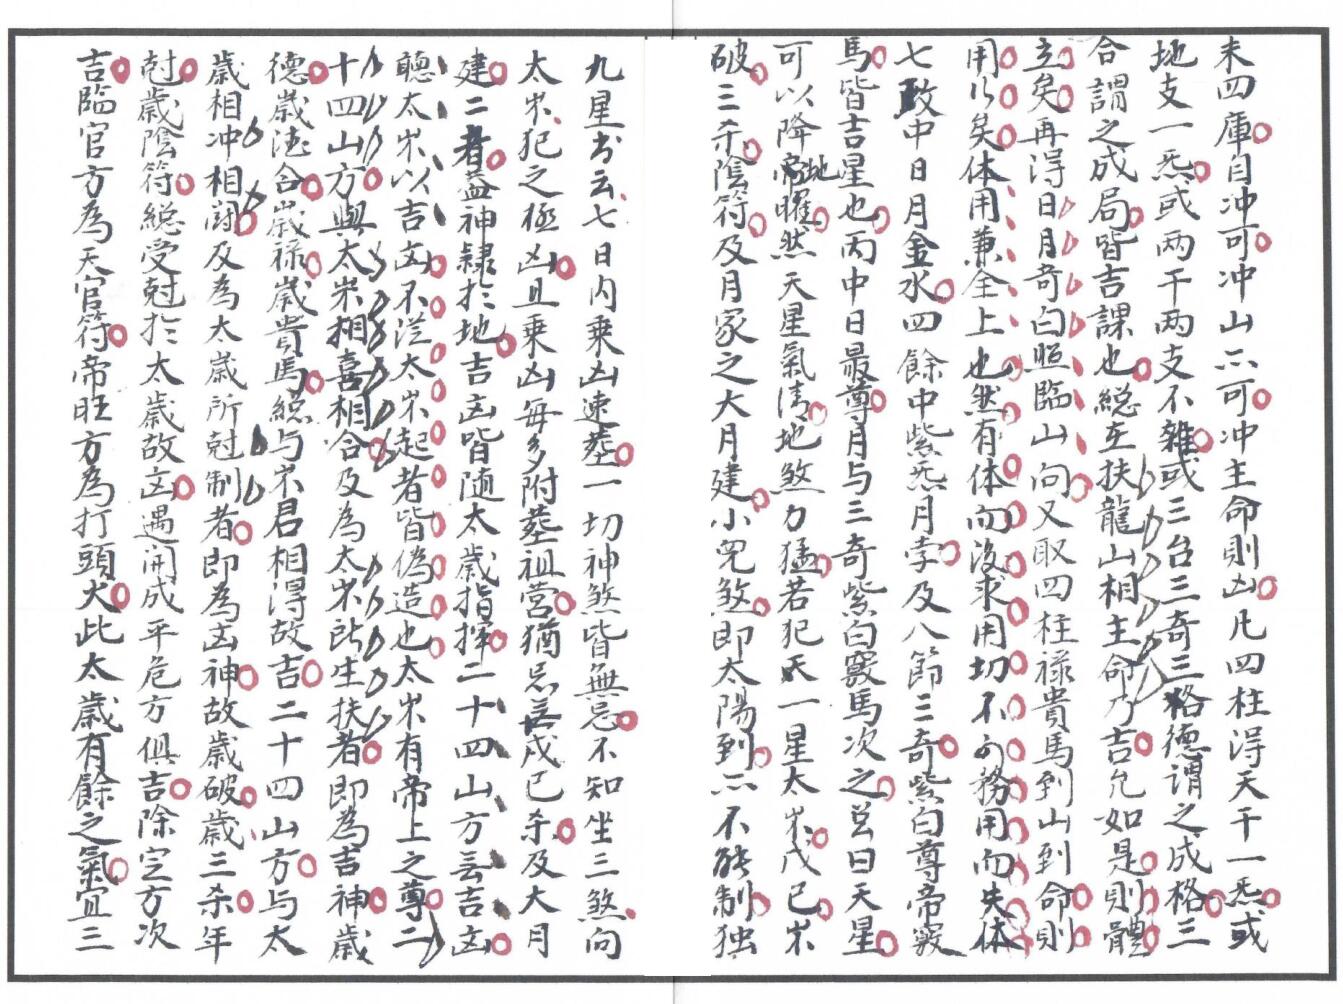 未四庫自冲可冲山亦可冲主命則凶凡四柱淂天干一炁或
地支一炁或两干两支不雜或三台三奇三格德謂之成格三
合謂之成局皆吉課也總在扶龍山相主命乃吉允如是則體
立矣再淂日月奇白照臨山向又取四柱禄貴馬到山到命則
用行矣体用兼全上也然有体而没求用切不可務用而失体
七政中日月金水四餘中紫炁月孛及八節三奇紫白尊帝竅
馬皆吉星也丙中日最尊月与三奇紫白竅馬次之总曰天星
可以降帝地曜然天星氣清地煞力猛若犯天一星太岁戊已岁
破三杀陰符及月家之大月建小児煞即太陽到亦不能制独
九星书云七日内乗凶速塟一切神煞皆無忌不知坐三煞向
太岁犯之極凶且乗凶每多附塟祖营猶忌丟戊已杀及大月
建二者葢神隷扵地吉凶皆随太歲指揮二十四山方丟吉凶
聽太岁以吉凶不従太岁起者皆偽造也太岁有帝上之尊二
十四山方與太岁相喜相合及為太岁所生扶者即為吉神歲
德歲德合歲禄歲貴馬總与岁君相淂故吉二十四山方与太
歲相冲相鬪及為太歲所尅制者即為凶神故歲破歲三杀年
尅歲陰符總受尅扵太歲故凶遇開成平危方俱吉除定方次
吉臨官方為天官符帝旺方為打頭火此太歲有餘之氣宜三